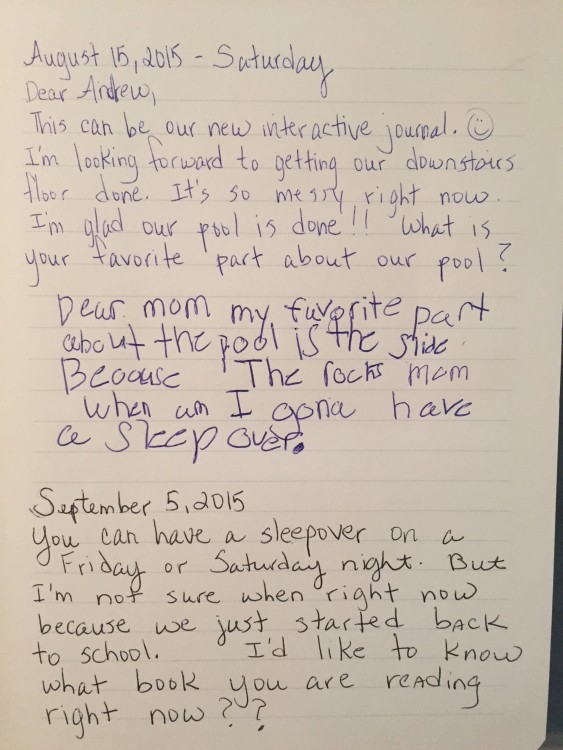 August 15, 2015 - Saturday
Dear Andrew,
This can be our new interactive journal. ☺
I'm looking forward to getting our downstairs
floor done. It's so messy right now.
I'm glad our pool is done!! What is
your favorite part about our pool?
Dear mom my favorite part
about the pool is the slide.
Becouse The rocks mom
when am I gona have
a sleep over.
September 5, 2015
You can have a sleepover on a
Friday or Saturday night. But
I'm not sure when right now
because we just started back
to school. I'd like to know
what book you are reading
right now??